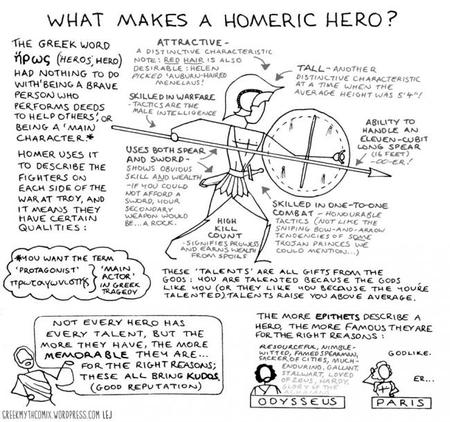 WHAT MAKES A HOMERIC HERO?
THE GREEK WORD
ἥρως (HEROS, HERO)
HAD NOTHING TO DO
WITH 'BEING A BRAVE
PERSON WHO
PERFORMS DEEDS
TO HELP OTHERS', OR
BEING A 'MAIN
CHARACTER.*
HOMER USES IT
TO DESCRIBE THE
FIGHTERS ON
EACH SIDE OF THE
WAR AT TROY, AND
IT MEANS THEY
HAVE CERTAIN
QUALITIES:
*YOU WANT THE TERM
'PROTAGONIST'
πρωταγωνιστης
'MAIN
ACTOR'
IN GREEK
TRAGEDY
ATTRACTIVE -
A DISTINCTIVE CHARACTERISTIC
NOTE: RED HAIR IS ALSO
DESIRABLE: HELEN
PICKED 'AUBURN-HAIRED
MENELAUS'!
SKILLED IN WARFARE
- TACTICS ARE THE
MALE INTELLIGENCE
USES BOTH SPEAR
AND SWORD -
SHOWS OBVIOUS
SKILL AND WEALTH
- IF YOU COULD
NOT AFFORD A
SWORD, YOUR
SECONDARY
WEAPON WOULD
BE... A ROCK.
HIGH
KILL
COUNT
- SIGNIFIES PROWESS
AND EARNS WEALTH
FROM SPOILS
TALL - ANOTHER
DISTINCTIVE CHARACTERISTIC
AT A TIME WHEN THE
AVERAGE HEIGHT WAS 5'4"!
ABILITY TO
HANDLE AN
ELEVEN-CUBIT
LONG SPEAR
(16 FEET)
- CO-ER!
SKILLED IN ONE-TO-ONE
COMBAT - HONOURABLE
TACTICS (NOT LIKE THE
SNIPING BOW-AND-ARROW
TENDENCIES OF SOME
TROJAN PRINCES WE
COULD MENTION...)
THESE 'TALENTS' ARE ALL GIFTS FROM THE
GODS: YOU ARE TALENTED BECAUSE THE GODS
LIKE YOU (OR THEY LIKE YOU BECAUSE THE YOU'RE
TALENTED) TALENTS RAISE YOU ABOVE AVERAGE.
NOT EVERY HERO HAS
EVERY TALENT, BUT THE
MORE THEY HAVE, THE MORE
MEMORABLE THEY ARE...
FOR THE RIGHT REASONS;
THESE ALL BRING KUDOS.
(GOOD REPUTATION)
THE MORE EPITHETS DESCRIBE A
HERO, THE MORE FAMOUS THEY ARE
FOR THE RIGHT REASONS:
RESOURCEFUL, NIMBLE-
WITTED, FAMED SPEARMAN,
SACKER OF CITIES, MUCH-
ENDURING, GALLANT,
STALWART, LOVED
OF ZEUS, HARDY,
GLORY OF THE
ODYSSEUS
GODLIKE.
ER...
PARIS
GREEKMYTHCOMIX.WORDPRESS.COM LEJ